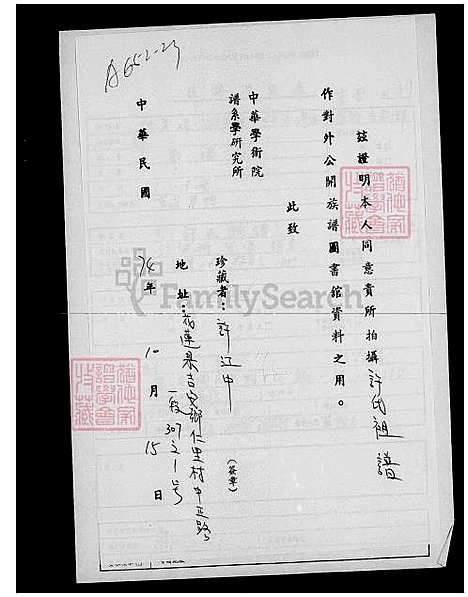 A652-23
茲證明本人同意貴所拍攝許氏祖譜
作對外公開族譜圖書館資料之用。
此致
中華學術院
譜系學研究所
珍藏者：許江中
(簽章)
地址：花蓮縣吉安鄉仁里村中正路
一段307之1号
中華民國74年10月15日
FamilySearch